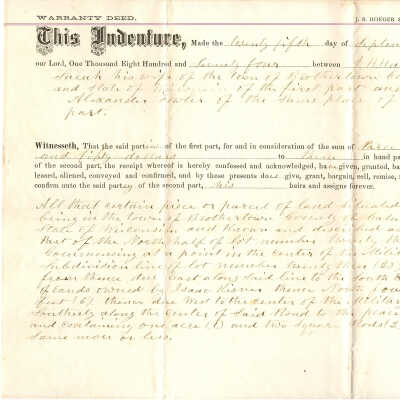 WARRANTY DEED. J. B. HOEGER &
This Indenture, Made the twenty fifth day of Septem
our Lord, One Thousand Eight Hundred and Seventy four between
Sarah his wife of the town of Brothertown
and State of Wisconsin of the first part and
Alexander of the same place of
part.
Witnesseth, That the said parties of the first part, for and in consideration of the sum of Three
and fifty dollars to them in hand pa
of the second part, the receipt whereof is hereby confessed and acknowledged, have given, granted, ba
leased, aliened, conveyed and confirmed, and by these presents do give, grant, bargain, sell, remise,
confirm unto the said party of the second part, his heirs and assigns forever.
All that certain piece or parcel of land situated
being in the town of Brothertown County of Calu
State of Wisconsin and known and described as
Part of the North half of lot number twenty th
Commencing at a point in the center of the Mili
subdivision line of lot number twenty three (23)
from thence due East along said line to the South E
of lands owned by Isaac thence North four
feet (6) thence due West to the center of the Militar
Southerly along the center of said Road to the place
and containing one acre (1) and two square Rods (2
same more or less.